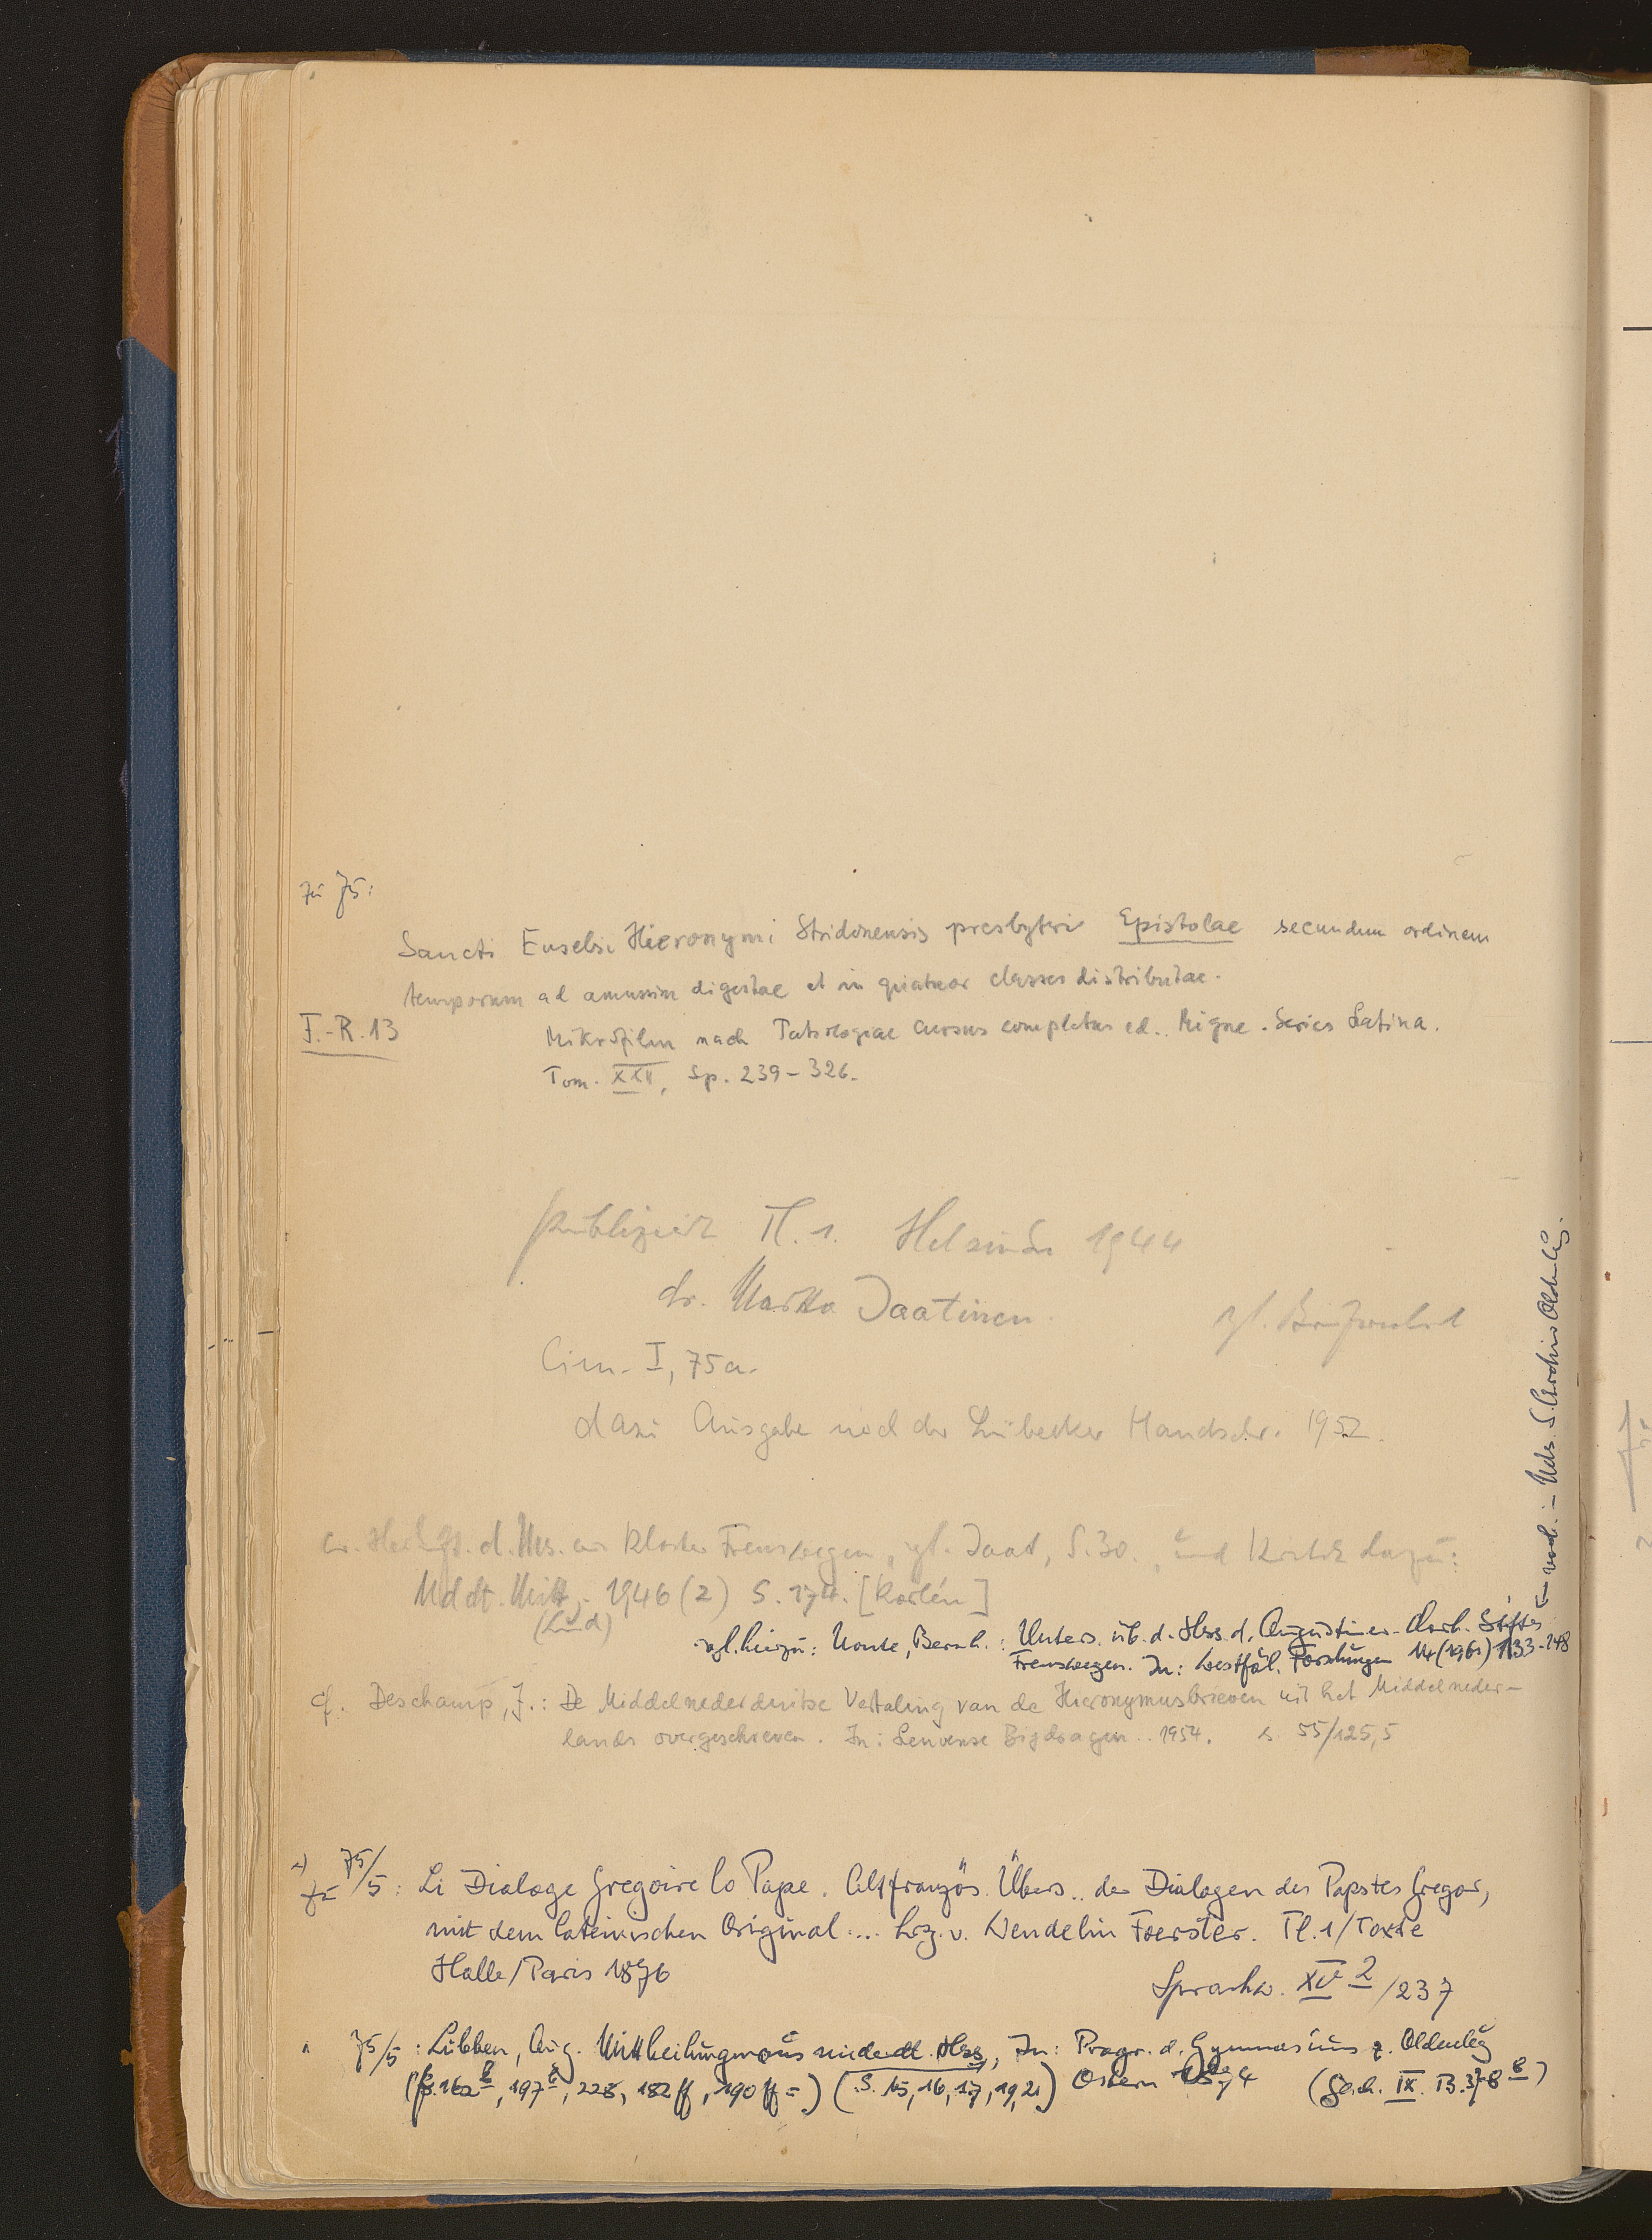 zu 75:
Sancti Eusebi Hieronymi Stridonensis presbyteri Epistolae secundum ordinem
temporum ad amussim digestae et in quatuor classes distributae.
F.-R. 13
Mikrofilm nach Patrologiae cursus completus ed. Migne. Series Latina.
Tom. XXII, Sp. 239-326.
publiziert Tl. 1. Helsinki 1944
dr. Marta Jaatinen.
Cim. I, 75a.
dazu Ausgabe nach der Lübecker Handschr. 1952.
d. Hs. Kloster Frenswegen, vgl. Jaat, S. 30., und Kritik dazu:
Nddt. Mitt. 1946 (2) S. 174. [Korlén]
(Lund)
vgl. hierzu: Nonte, Bernh.: Unters. üb. d. Hss. d. Augustiner-Chorh. Stiftes
Frenswegen. In: Westfäl. Forschungen 14 (1961) 133-148
Nds. S. Archiv Oldenbg.
cf. Deschamp, J.: De Middelnederduitse Vertaling van de Hieronymusbrieven uit het Middelneder-
lands overgeschreven. In: Leuvense Bijdragen.. 1954. s. 55/125,5
zu 75/5: Li Dialoge Gregoire lo Pape. Altfranzös. Übers.. der Dialogen des Papstes Gregor,
mit dem lateinischen Original.... hrg. v. Wendelin Foerster. Tl. 1/Texte
Halle/Paris 1876
Sprachw. XV 2/237
75/5: Lübben, Aug. Mittheilungen aus niederdt. Hss, In: Progr. d. Gymnasiums z. Oldenbg
(f. 162b, 197b, 228, 182ff, 190ff=) (S. 15, 16, 17, 19, 21) Ostern 1874 (Gesch. IX. B. 378 B)